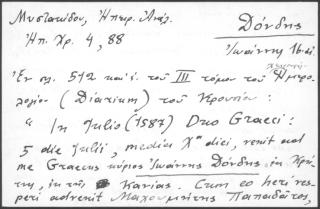 Μυστακίδου, Ηπειρ. Ανάλ.
Δόνδης
Ηπ. Χρ. 4, 88
Ἰωάννης 16 αἰ
Ἐν σελ. 512 καὶ ἑ. τοῦ III τόμου τοῦ Ἡμερο-
λογίου (Diarium) τοῦ Κρουσίου:
" In Julio (1587) Duo Graeci:
5 die Julii, media Xª diei, venit ad
me Graecus κύριος Ἰωάννης Δόνδης ἐκ Κρή-
της, ἐκ τῆς Κανίας. Cum eo heri ves-
peri advenit Μαχουμούτης Παπαδάτος,